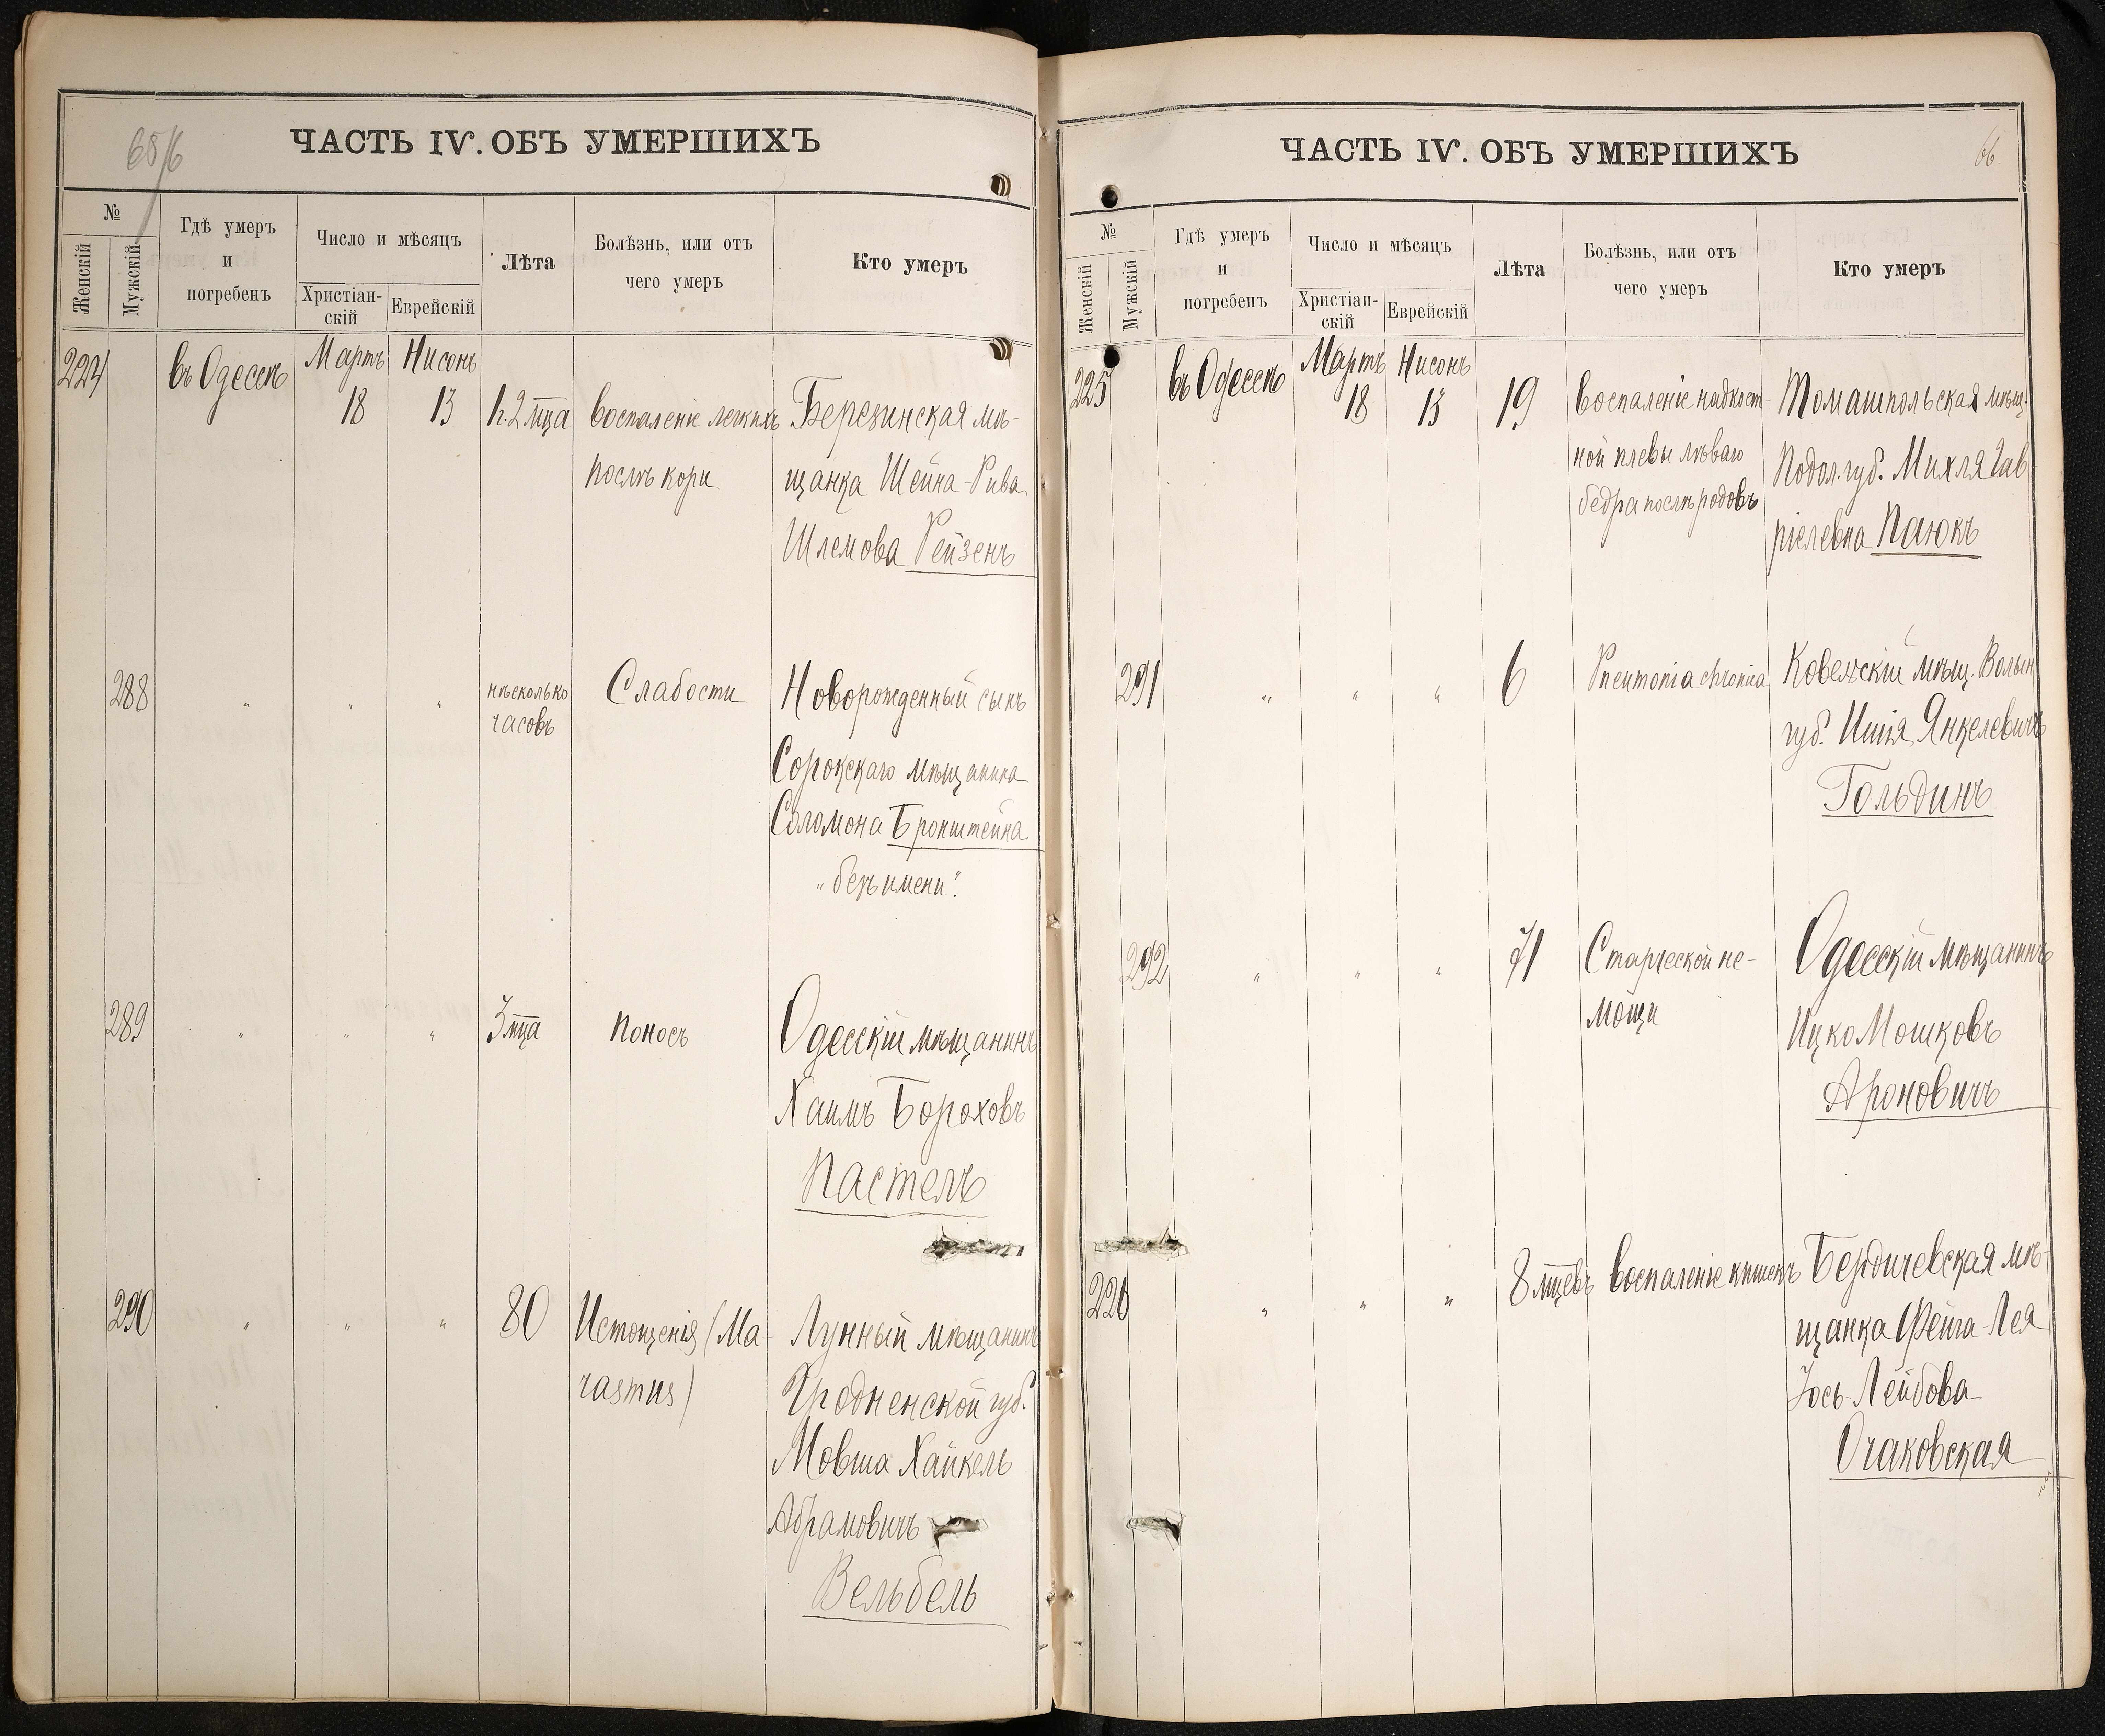 65/6
ЧАСТЬ IV. ОБЪ УМЕРШИХЪ
№
Женскій
Мужскій
Гдѣ умеръ
и
погребенъ
Число и мѣсяцъ
Христіан-
скій
Еврейскій
Лѣта
Болѣзнь, или отъ
чего умеръ
Кто умеръ
224 въ Одессѣ Мартъ 18 Нисонъ 13 1г. 2 мца
воспаленіе легкихъ
послѣ кори
Березинская мѣ-
щанка Шейна-Рива
Шлемова Рейзенъ
288 " " " нѣсколько
часовъ
Слабости
Новорожденный сынъ
Сорокскаго мѣщанина
Соломона Бронштейна
"безъ имени".
289 " " " 3 мца поносъ
Одесскій мѣщанинъ
Хаимъ Бороховъ
Пастелъ
290 " " " 80
Истощенія (Ма-
rasmus)
Лунный мѣщанинъ
Гродненской губ.
Мовша Хайкель
Абрамовичъ
Вельбель
ЧАСТЬ IV. ОБЪ УМЕРШИХЪ
66.
№
Женскій
Мужскій
Гдѣ умеръ
и
погребенъ
Число и мѣсяцъ
Христіан-
скій
Еврейскій
Лѣта
Болѣзнь, или отъ
чего умеръ
Кто умеръ
225 въ Одессѣ Мартъ 18 Нисонъ 13 19
воспаленіе надкост-
ной плевы лѣваго
бедра послѣ родовъ
Томашпольская мѣщ.
Подол. губ. Михля Гав
ріелевна Паюкъ
291 " " " 6 Pneumonia chronica
Ковельскій мѣщ. Волын
губ. Ишія Янкелевичъ
Гольдинъ
292 " " " 71
Старческой не-
мощи
Одесскій мѣщанинъ
Ицко Мошковъ
Ароновичъ
226 " " " 8 мцевъ воспаленіе кишекъ
Бердичевская мѣ-
щанка Фейга-Лея
Іось-Лейбова
Очаковская